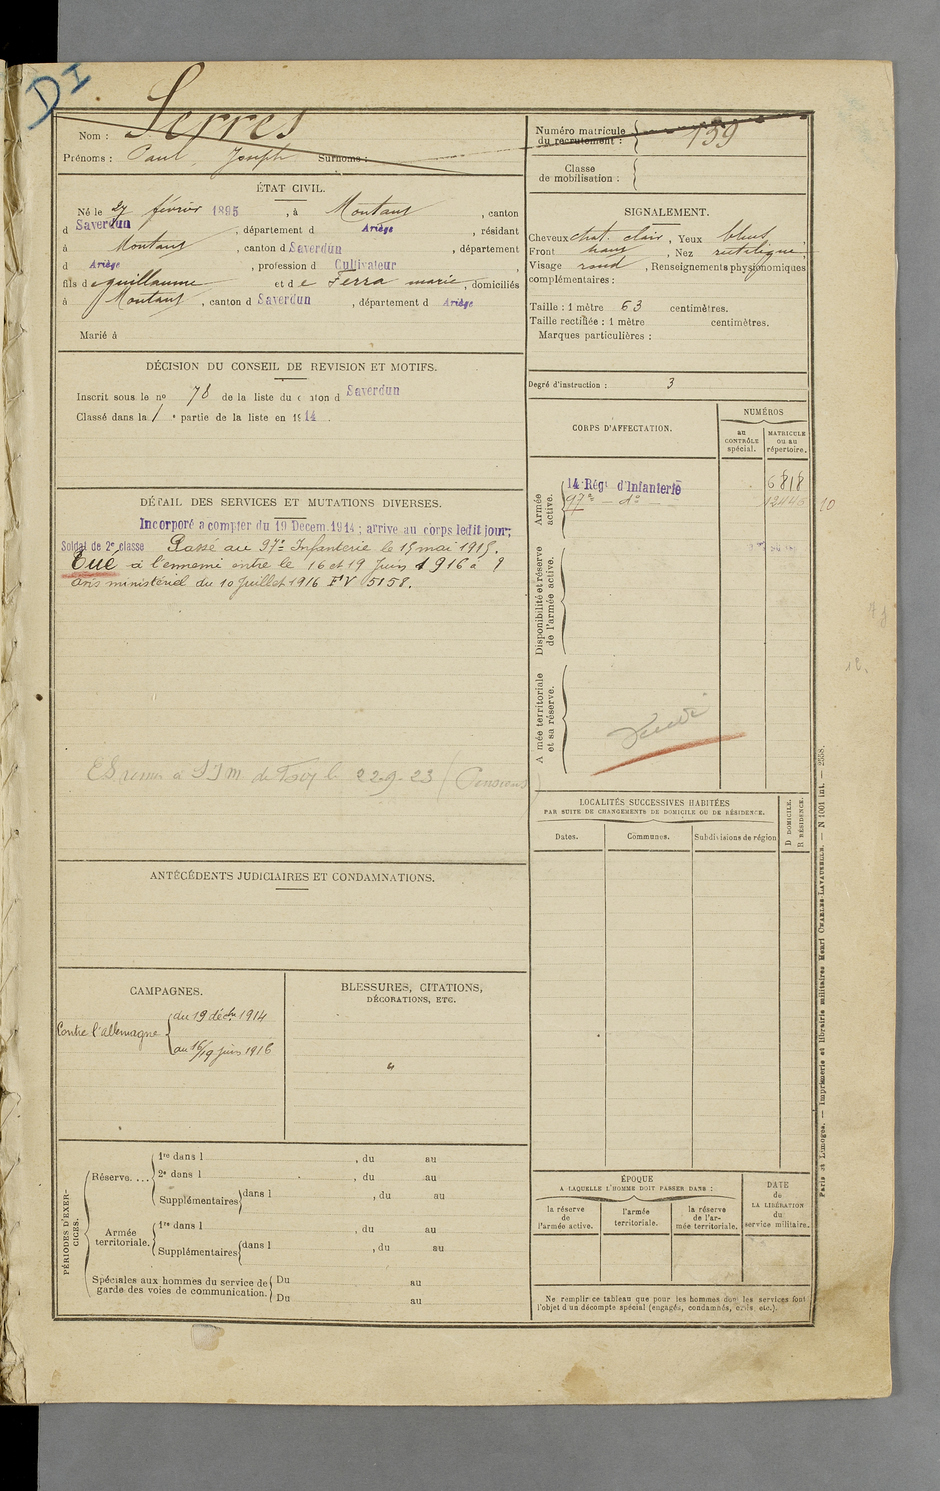 DI
Nom : Serres
Prénoms : Paul Joseph Surnoms :
Numéro matricule du recrutement : 139
Classe de mobilisation :
ÉTAT CIVIL.
Né le 27 février 1895, à Montaut, canton
d Saverdun, département d Ariège, résidant
à Montaut, canton d Saverdun, département
d Ariège, profession d Cultivateur,
fils de guillaume et de Ferra marie, domiciliés
à Montaut, canton d Saverdun, département d Ariège
Marié à
SIGNALEMENT.
Cheveux chat. clair, Yeux bleus,
Front moy, Nez rectiligne,
Visage rond, Renseignements physionomiques
complémentaires :
Taille : 1 mètre 63 centimètres.
Taille rectifiée : 1 mètre centimètres.
Marques particulières :
Degré d'instruction : 3
DÉCISION DU CONSEIL DE REVISION ET MOTIFS.
Inscrit sous le no 78 de la liste du canton d Saverdun
Classé dans la 1 e partie de la liste en 1914.
CORPS D'AFFECTATION.
NUMÉROS
au CONTRÔLE spécial.
MATRICULE ou au répertoire.
Armée active.
14 Régt d'Infanterie 6818
97e — do — 12446
10
Disponibilité et réserve de l'armée active.
Armée territoriale et sa réserve.
DÉTAIL DES SERVICES ET MUTATIONS DIVERSES.
Incorporé a compter du 19 Décem. 1914 ; arrive au corps ledit jour;
Soldat de 2e classe Passé au 97e Infanterie le 15 mai 1915.
Tué à l'ennemi entre le 16 et 19 juin 1916 à
avis ministériel du 10 juillet 1916 FV 5158.
ES remis à SIM de Foix le 22-9-23 (Pensions
LOCALITÉS SUCCESSIVES HABITÉES
PAR SUITE DE CHANGEMENTS DE DOMICILE OU DE RÉSIDENCE.
Dates. Communes. Subdivisions de région
D DOMICILE.
R RÉSIDENCE.
ANTÉCÉDENTS JUDICIAIRES ET CONDAMNATIONS.
CAMPAGNES.
Contre l'allemagne
du 19 décbre 1914
au 16/19 juin 1916
BLESSURES, CITATIONS,
DÉCORATIONS, ETC.
"
PÉRIODES D'EXERCICES.
Réserve....
1re dans l , du au
2e dans l , du au
Supplémentaires dans l , du au
Armée territoriale.
1re dans l , du au
Supplémentaires dans l , du au
Spéciales aux hommes du service de
garde des voies de communication.
Du au
Du au
ÉPOQUE
A LAQUELLE L'HOMME DOIT PASSER DANS :
la réserve de l'armée active.
l'armée territoriale.
la réserve de l'armée territoriale.
DATE de LA LIBÉRATION du service militaire.
Ne remplir ce tableau que pour les hommes dont les services font
l'objet d'un décompte spécial (engagés, condamnés, exclus, etc.).
Paris et Limoges. — Imprimerie et librairie militaires Henri CHARLES-LAVAUZELLE. — N 1001 int. — 2558.